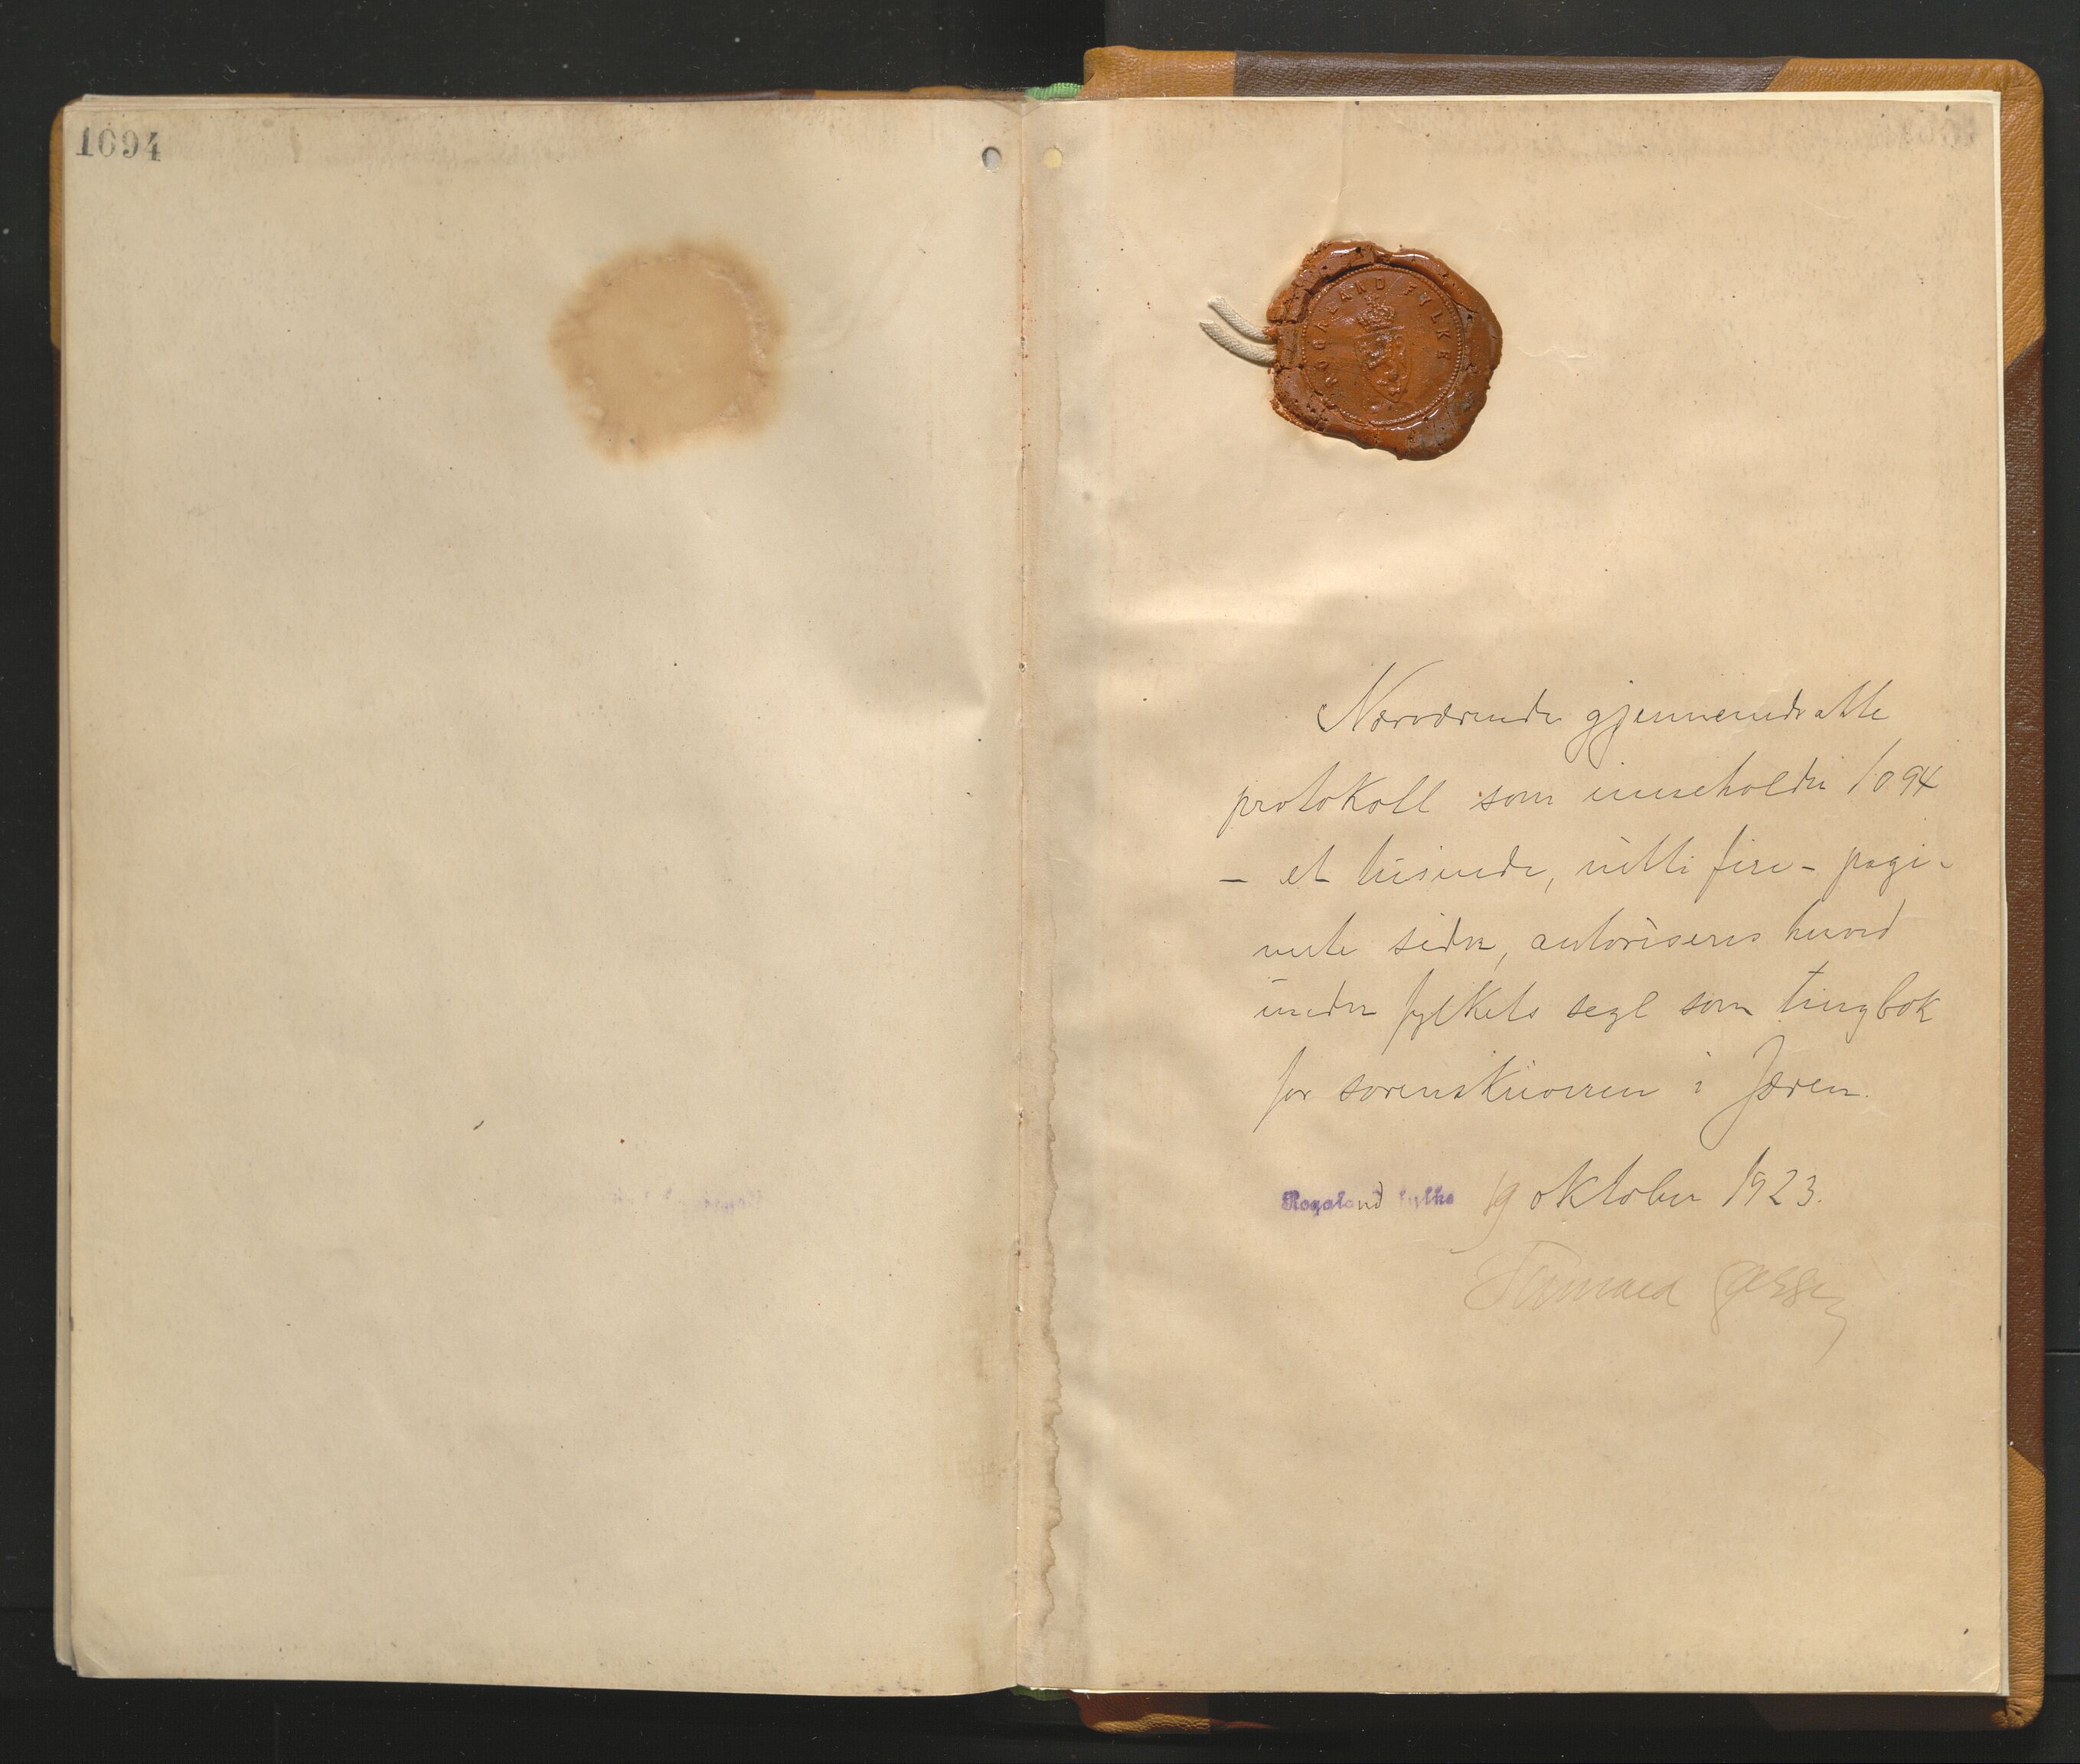 1094
ROGALAND FYLKE
Nærværende gjennemdratte
protokoll som inneholder 1094
– et tusinde, nitti fire – pagi-
nerte sider, autoriseres herved
under fylkets segl som tingbok
for sorenskriveren i Jæren.
Rogaland fylke 19 oktober 1923.